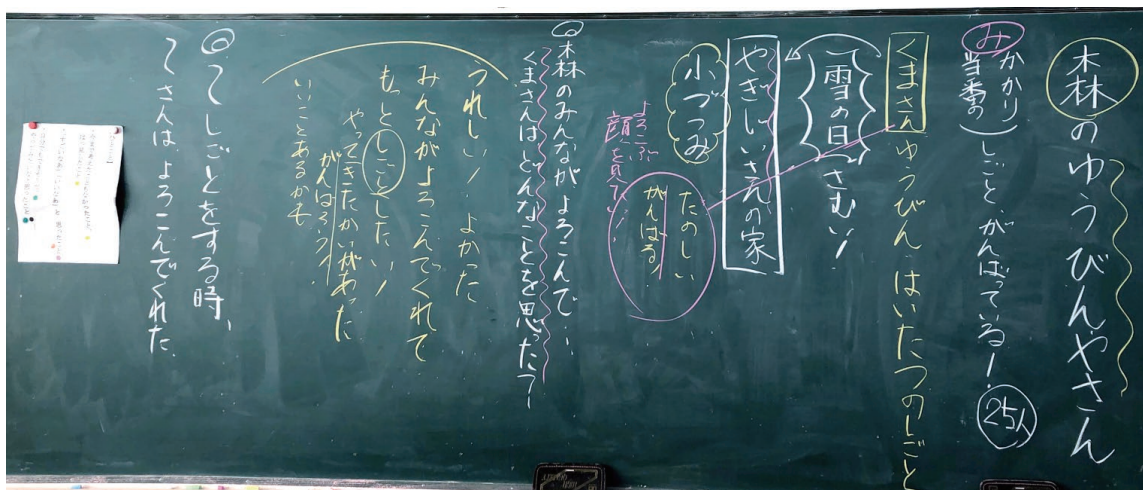 森のゆうびんやさん
み
かかり
当番の
しごと がんばっている!
25人
くまさん ゆうびんはいたつのしごと
雪の日 さむい!
やぎじいさんの家
小づつみ
たのしい
がんばる!
よろこぶ
顔を見て!
森のみんなが よろこんで…
くまさんはどんなことを思った?
うれしい! よかった
みんなが よろこんでくれて
もっと しごとしたい!
やってきたかいがあった
がんばろう!
いいことあるかも
しごとをする時、
さんは よろこんでくれた